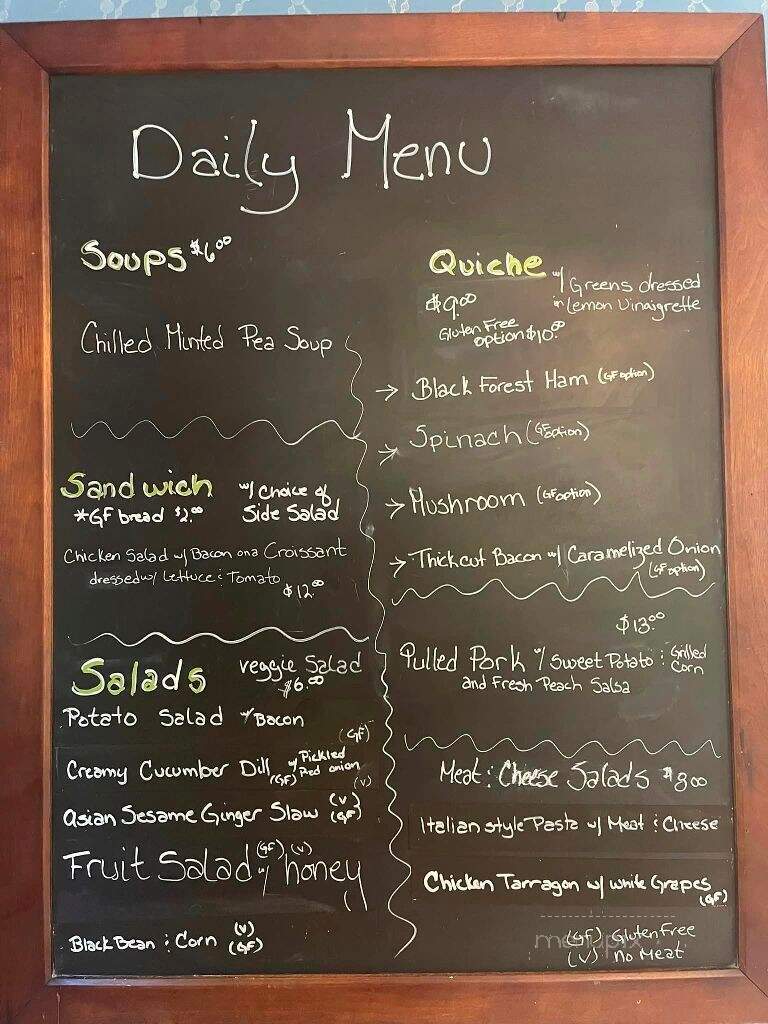 Daily Menu
Soups $6.00
Chilled Minted Pea Soup
Sandwich w/ choice of
*GF bread $2.00 Side Salad
Chicken Salad w/ Bacon on a Croissant
dressed w/ Lettuce & Tomato
$12.00
Salads veggie Salad
$6.00
Potato Salad w/ Bacon
(GF)
Creamy Cucumber Dill w/ Pickled
(GF) Red onion
(V)
Asian Sesame Ginger Slaw (V)
(GF)
Fruit Salad (GF) (V)
w/ honey
Black Bean & Corn (V)
(GF)
Quiche w/ Greens dressed
$9.00 in Lemon Vinaigrette
Gluten Free
option $10.00
→ Black Forest Ham (GF option)
→ Spinach (GF option)
→ Mushroom (GF option)
→ Thick cut Bacon w/ Caramelized Onion
(GF option)
$13.00
Pulled Pork w/ Sweet Potato & Grilled
Corn
and Fresh Peach Salsa
Meat & Cheese Salads $8.00
Italian style Pasta w/ Meat & Cheese
Chicken Tarragon w/ white Grapes
(GF)
(GF) Gluten Free
(V) No Meat
menupix